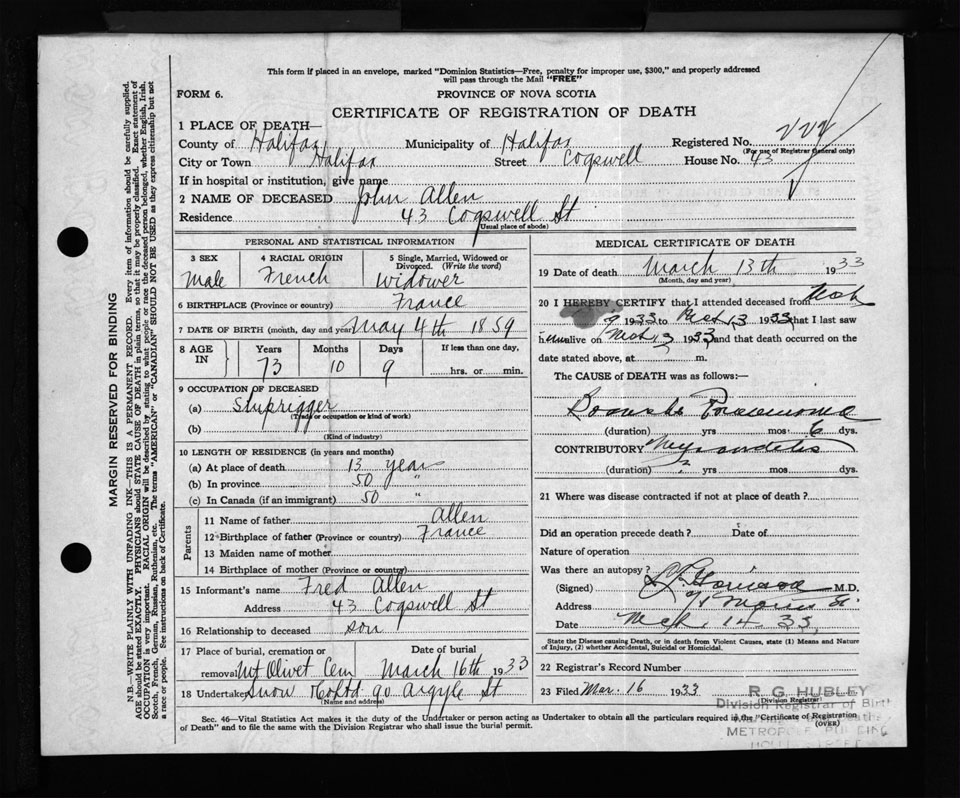 This form if placed in an envelope, marked "Dominion Statistics—Free, penalty for improper use, $300," and properly addressed
will pass through the Mail "FREE"
FORM 6.
PROVINCE OF NOVA SCOTIA
CERTIFICATE OF REGISTRATION OF DEATH
1 PLACE OF DEATH—
County of Halifax Municipality of Halifax Registered No.
(For use of Registrar General only)
City or Town Halifax Street Cogswell House No. 43
If in hospital or institution, give name
2 NAME OF DECEASED John Allen
Residence 43 Cogswell St
(Usual place of abode)
PERSONAL AND STATISTICAL INFORMATION
3 SEX Male
4 RACIAL ORIGIN French
5 Single, Married, Widowed or Divorced. (Write the word) Widower
6 BIRTHPLACE (Province or country) France
7 DATE OF BIRTH (month, day and year) May 4th 1859
8 AGE IN Years Months Days If less than one day,
73 10 9 hrs. or min.
9 OCCUPATION OF DECEASED
(a) Shiprigger
(Trade or occupation or kind of work)
(b)
(Kind of industry)
10 LENGTH OF RESIDENCE (in years and months)
(a) At place of death 13 years
(b) In province 50 "
(c) In Canada (if an immigrant) 50 "
Parents
11 Name of father Allen
12 Birthplace of father (Province or country) France
13 Maiden name of mother
14 Birthplace of mother (Province or country)
15 Informant's name Fred Allen
Address 43 Cogswell St
16 Relationship to deceased son
17 Place of burial, cremation or Date of burial
removal Mt Olivet Cem March 16th 1933
18 Undertaker Snow & Co Ltd 90 Argyle St
(Name and address)
MEDICAL CERTIFICATE OF DEATH
19 Date of death March 13th 1933
(Month, day and year)
20 I HEREBY CERTIFY that I attended deceased from Mch
9 1933 to Mch 13 1933 that I last saw
him alive on Mch 1933, and that death occurred on the
date stated above, at m.
The CAUSE of DEATH was as follows:—
Pneumonia
(duration) yrs mos 6 dys.
CONTRIBUTORY
(duration) ? yrs mos dys.
21 Where was disease contracted if not at place of death?
Did an operation precede death? Date of
Nature of operation
Was there an autopsy?
(Signed) M.D.
Address 71 Morris St
Date Mch 14 33
State the Disease causing Death, or in death from Violent Causes, state (1) Means and Nature
of Injury, (2) whether Accidental, Suicidal or Homicidal.
22 Registrar's Record Number
23 Filed Mar. 16 1933
R. G. HUBLEY
(Division Registrar)
Division Registrar of Birth
METROPOLE BUILDING
HOLLIS STREET
Sec. 46—Vital Statistics Act makes it the duty of the Undertaker or person acting as Undertaker to obtain all the particulars required in the "Certificate of Registration
of Death" and to file the same with the Division Registrar who shall issue the burial permit.
(OVER)
MARGIN RESERVED FOR BINDING
N.B.—WRITE PLAINLY WITH UNFADING INK—THIS IS A PERMANENT RECORD. Every item of information should be carefully supplied.
AGE should be stated EXACTLY. PHYSICIANS should STATE CAUSE OF DEATH in plain terms, so that it may be properly classified. Exact statement of
OCCUPATION is very important. RACIAL ORIGIN will be described by stating to what people or race the deceased person belonged, whether English, Irish,
Scotch, French, German, Russian, Ruthenian, etc. The terms "AMERICAN" or "CANADIAN" SHOULD NOT BE USED as they express citizenship but not
a race or people. See instructions on back of Certificate.